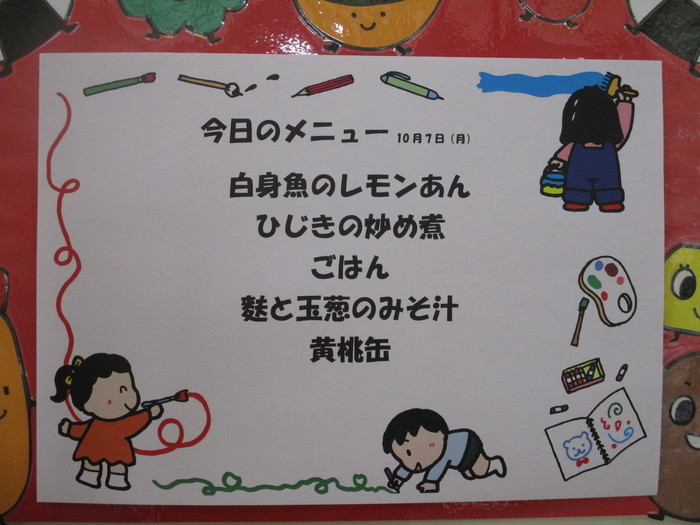 今日のメニュー 10月7日(月)
白身魚のレモンあん
ひじきの炒め煮
ごはん
麩と玉葱のみそ汁
黄桃缶